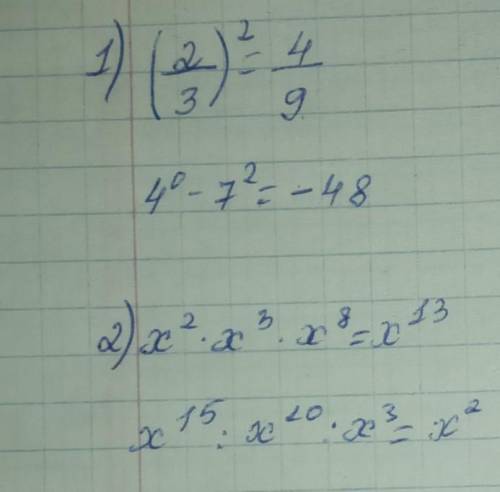 1) (2/3)² = 4/9
4⁰ - 7² = -48
2) x² · x³ · x⁸ = x¹³
x¹⁵ : x¹⁰ : x³ = x²